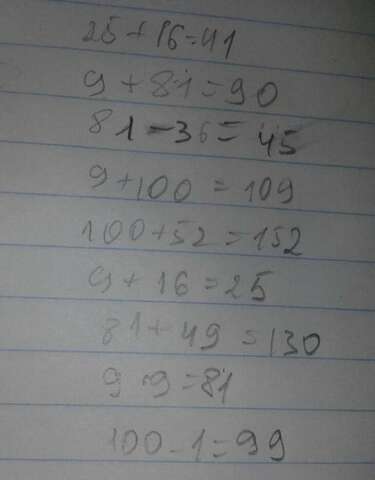 25+16=41
9+81=90
81-36=45
9+100=109
100+52=152
9+16=25
81+49=130
9·9=81
100-1=99